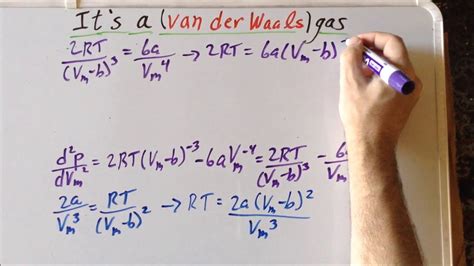 It's a (van der Waals) gas
2RT/(Vm-b)^3 = 6a/Vm^4 → 2RT = 6a(Vm-b)
d²P/dVm² = 2RT(Vm-b)^-3 - 6aVm^-4 = 2RT/(Vm-b)^3 - 6a
2a/Vm^3 = RT/(Vm-b)^2 → RT = 2a(Vm-b)^2/Vm^3